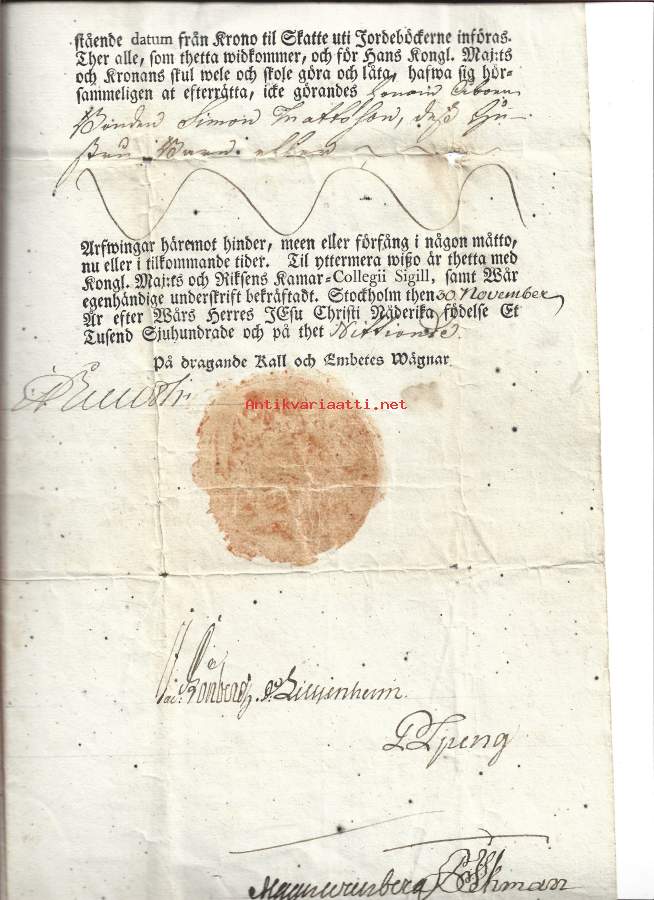 stående datum från Krono til Skatte uti Jordeböckerne införas.
Ther alle, som thetta widkommer, och för Hans Kongl. Maj:ts
och Kronans skul wele och skole göra och låta, hafwa sig hör-
sammeligen at efterrätta, icke görandes
Bonden Simon Mattsson, deß Hu-
stru Barn eller
Arfwingar häremot hinder, meen eller förfång i någon måtto,
nu eller i tilkommande tider. Til yttermera wißo är thetta med
Kongl. Maj:ts och Riksens Kamar-Collegii Sigill, samt Wår
egenhändige underskrift bekräftadt. Stockholm then 30 November
År efter Wårs Herres JEsu Christi Nåderika födelse Et
Tusend Sjuhundrade och på thet Nittionde.
På dragande Kall och Embetes Wägnar
Antikvariaatti.net